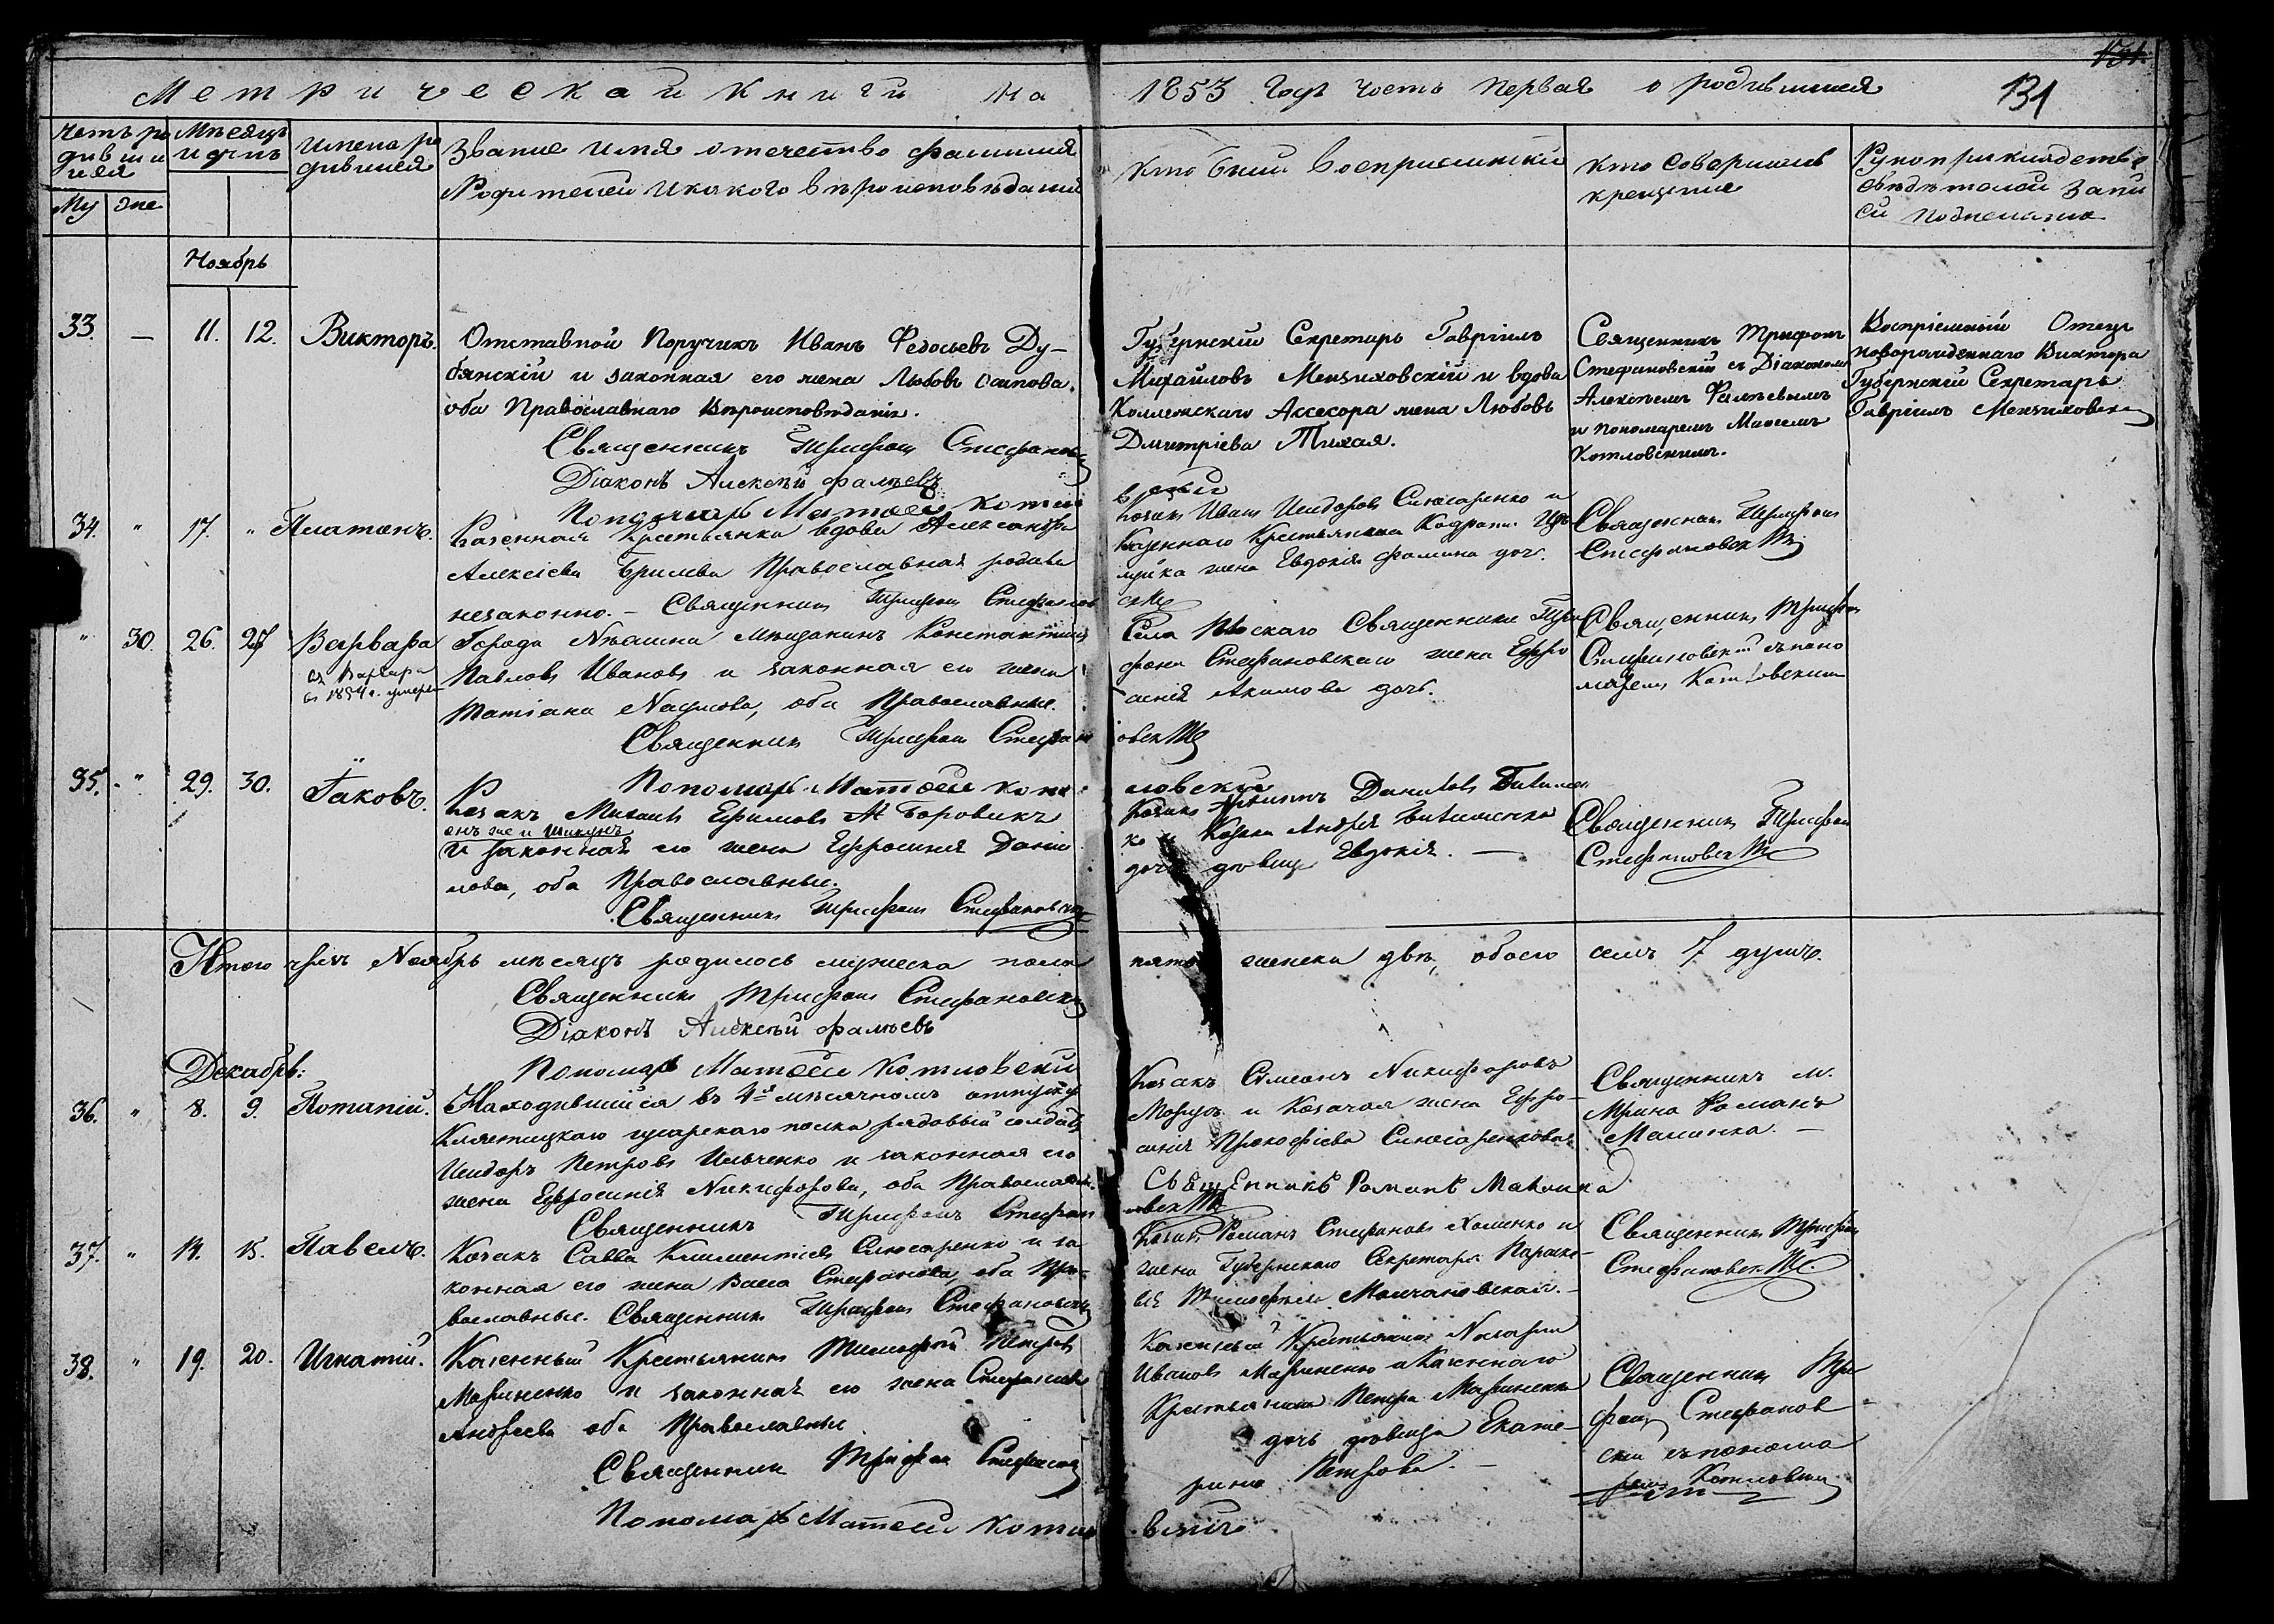 131
Метрической книги на 1853 годъ часть первая о родившихся
131
Четъ ро
дивши
хся
Му Же
Мѣсяцъ
и день
Имена ро
дившихся
Звание имя отечество фамилия
Родителей и какого вѣроисповѣдания
Кто были восприемники
Кто совершалъ
крещение
Рукоприкладство
свѣдѣтелей запи
си по желанию
Ноябрь
33. — 11. 12. Викторъ.
Отставной Поручикъ Иванъ Федосьевъ Ду-
бянскій и законная его жена Любовь Осипова.
оба Православнаго Вѣроисповѣданія.
Священникъ Трифонъ Стефанов
Діаконъ Алексѣй Фалѣевъ
Пономарь Матѳей Котло
Губернскій Секретарь Гавріилъ
Михайловъ и вдова
Коллежскаго Ассесора жена Любовь
Дмитріева Тихая.
вскій
Священникъ Трифонъ
Стефановскій съ Діакономъ
Алексѣемъ Фалѣевымъ
и пономаремъ Матѳеемъ
Котловскимъ.
Воспріемный Отецъ
новорожденнаго Виктора
Губернскій Секретарь
Гавріилъ
34. " 17. " Платонъ.
Казенная Крестьянка вдова Александра
Алексіева Православная родила
незаконно. — Священникъ Трифонъ Стефанов
Козакъ Иванъ Исидоровъ Слюсаренко и
Казеннаго Крестьянина
жена Евдокія Фомина доч.
скій
Священникъ Трифонъ
Стефановскій
" 30. 26. 27 Варвара
Варвара
въ 1854 г. умерла
Города Нѣжина мѣщанинъ Константинъ
Павловъ Ивановъ и законная его жена
Татіана Наумова, оба Православные.
Священникъ Трифонъ Стефан
Пономарь Матѳей Кот
Села Священника Три
фона Стефановскаго жена Евфро
синія Акимова доч.
овскій
ловскій
Священникъ Трифонъ
Стефановскій съ поно
маремъ Котловскимъ
35. " 29. 30. Іаковъ.
Козакъ Михаилъ Ефимовъ Боровикъ
онъ же и Шикунъ
и законная его жена Ефросинія Дани
лова, оба Православные.
Священникъ Трифонъ Стефановскій
Козакъ Даниловъ
ко и Козака Андрея
дочь дѣвица Евдокія. —
Священникъ Трифонъ
Стефановскій
Итого чрезъ Ноябрь мѣсяцъ родилось мужеска пола
пять женска двѣ, обоего семь 7 душъ.
Священникъ Трифонъ Стефановскій
Діаконъ Алексѣй Фалѣевъ
Пономарь Матѳей Котловскій
Декабрь:
36. " 8. 9. Потапій.
Находившійся въ мѣсячномъ отпуску
Клястицкаго гусарскаго полка рядовый солдатъ
Исидоръ Петровъ Ильченко и законная его
жена Ефросинія Никифорова, оба Православн.
Священникъ Трифонъ Стефан
Козакъ Симеонъ Никифоровъ
и Козачая жена Ефро-
синія Прокофіева Слюсаренкова
Свѣщенникъ Романъ Малинка
овскій
Священникъ м.
Мрина Романъ
Малинка. —
37. " 14. 15. Павелъ.
Козакъ Савва Климентіевъ Слюсаренко и за
конная его жена Васса Стефанова, оба Пра-
вославные. Священникъ Трифонъ Стефановскій
Козакъ Романъ Стефановъ Хоменко и
жена Губернскаго Секретаря Параске-
ва Тимофѣева Молчановская. —
Священникъ Трифонъ
Стефановскій
38. " 19. 20. Игнатій.
Казенный Крестьянинъ Тимофей Петровъ
Мариненко и законная его жена Стефанида
Андреева оба Православные
Священникъ Трифонъ Стефановскій
Пономарь Матѳей Котло
Казенный Крестьянинъ Назарій
Ивановъ Мариненко и Казеннаго
Крестьянина Петра Мариненка
дочь дѣвица Екате-
рина Петрова. —
вскій
Священникъ Три
фонъ Стефанов
скій съ понома
ремъ Котловским